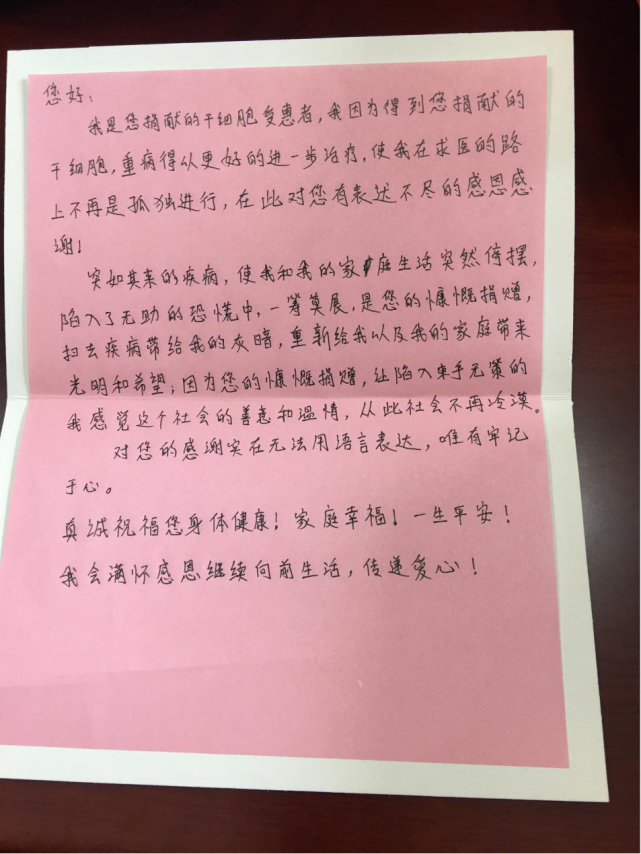 您好：
我是您捐献的干细胞受惠者，我因为得到您捐献的
干细胞，重病得以更好的进一步治疗，使我在求医的路
上不再是孤独进行，在此对您有表达不尽的感恩感
谢！
突如其来的疾病，使我和我的家庭生活突然停摆，
陷入了无助的恐慌中，一筹莫展，是您的慷慨捐赠，
扫去疾病带给我的灰暗，重新给我以及我的家庭带来
光明和希望；因为您的慷慨捐赠，让陷入束手无策的
我感觉这个社会的善意和温情，从此社会不再冷漠。
对您的感谢实在无法用语言表达，唯有牢记
于心。
真诚祝福您身体健康！家庭幸福！一生平安！
我会满怀感恩继续向前生活，传递爱心！